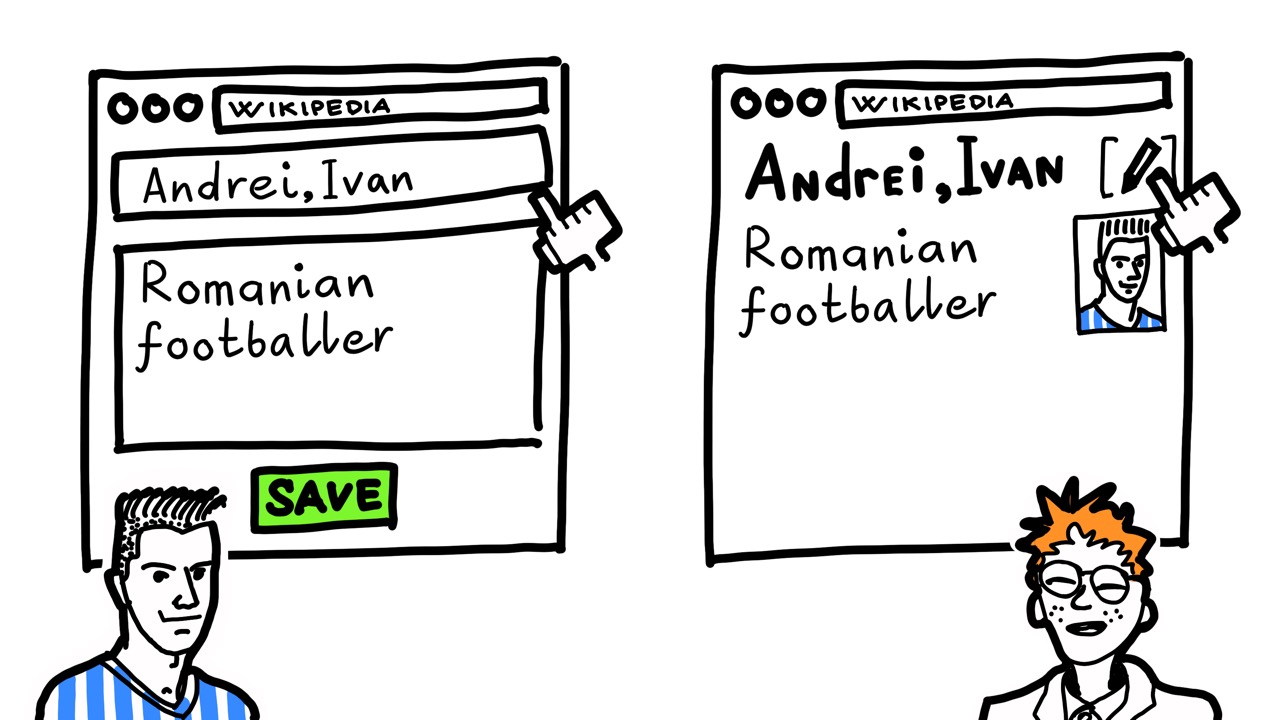 WIKIPEDIA
Andrei, Ivan
Romanian
footballer
SAVE
WIKIPEDIA
Andrei, Ivan
Romanian
footballer